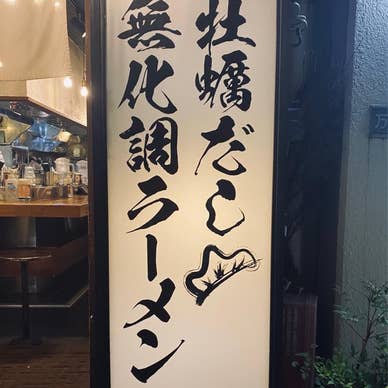 牡蠣だし
無化調ラーメン